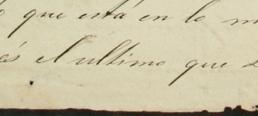 que está en lo m
es el ultimo que